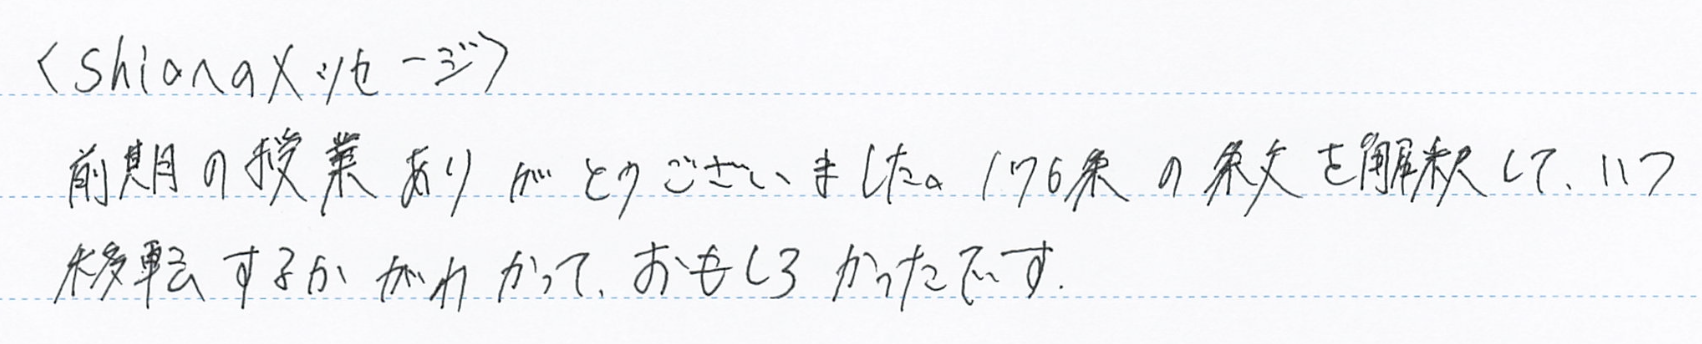 〈shionaメッセージ〉
前期の授業ありがとうございました。176条の条文を解釈して、いつ
移転するかがわかって、おもしろかったです.